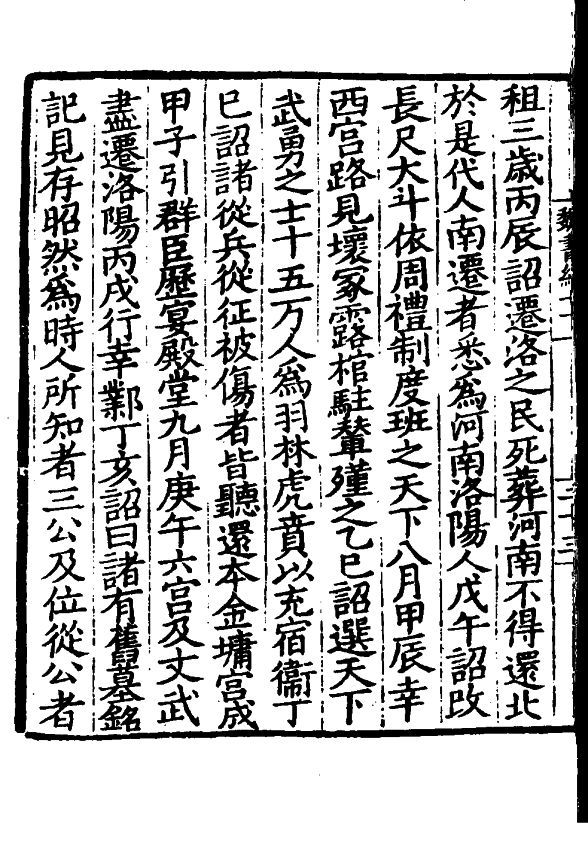 租三歲丙辰詔遷洛之民死葬河南不得還北
於是代人南遷者悉為河南洛陽人戊午詔改
長尺大斗依周禮制度班之天下八月甲辰幸
西宫路見壞冢露棺駐輦殣之乙巳詔選天下
武勇之士十五万人為羽林虎賁以充宿衞丁
巳詔諸從兵從征被傷者皆聽還本金墉宫成
甲子引群臣歷宴殿堂九月庚午六宫及文武
盡遷洛陽丙戌行幸鄴丁亥詔曰諸有舊墓銘
記見存昭然為時人所知者三公及位從公者